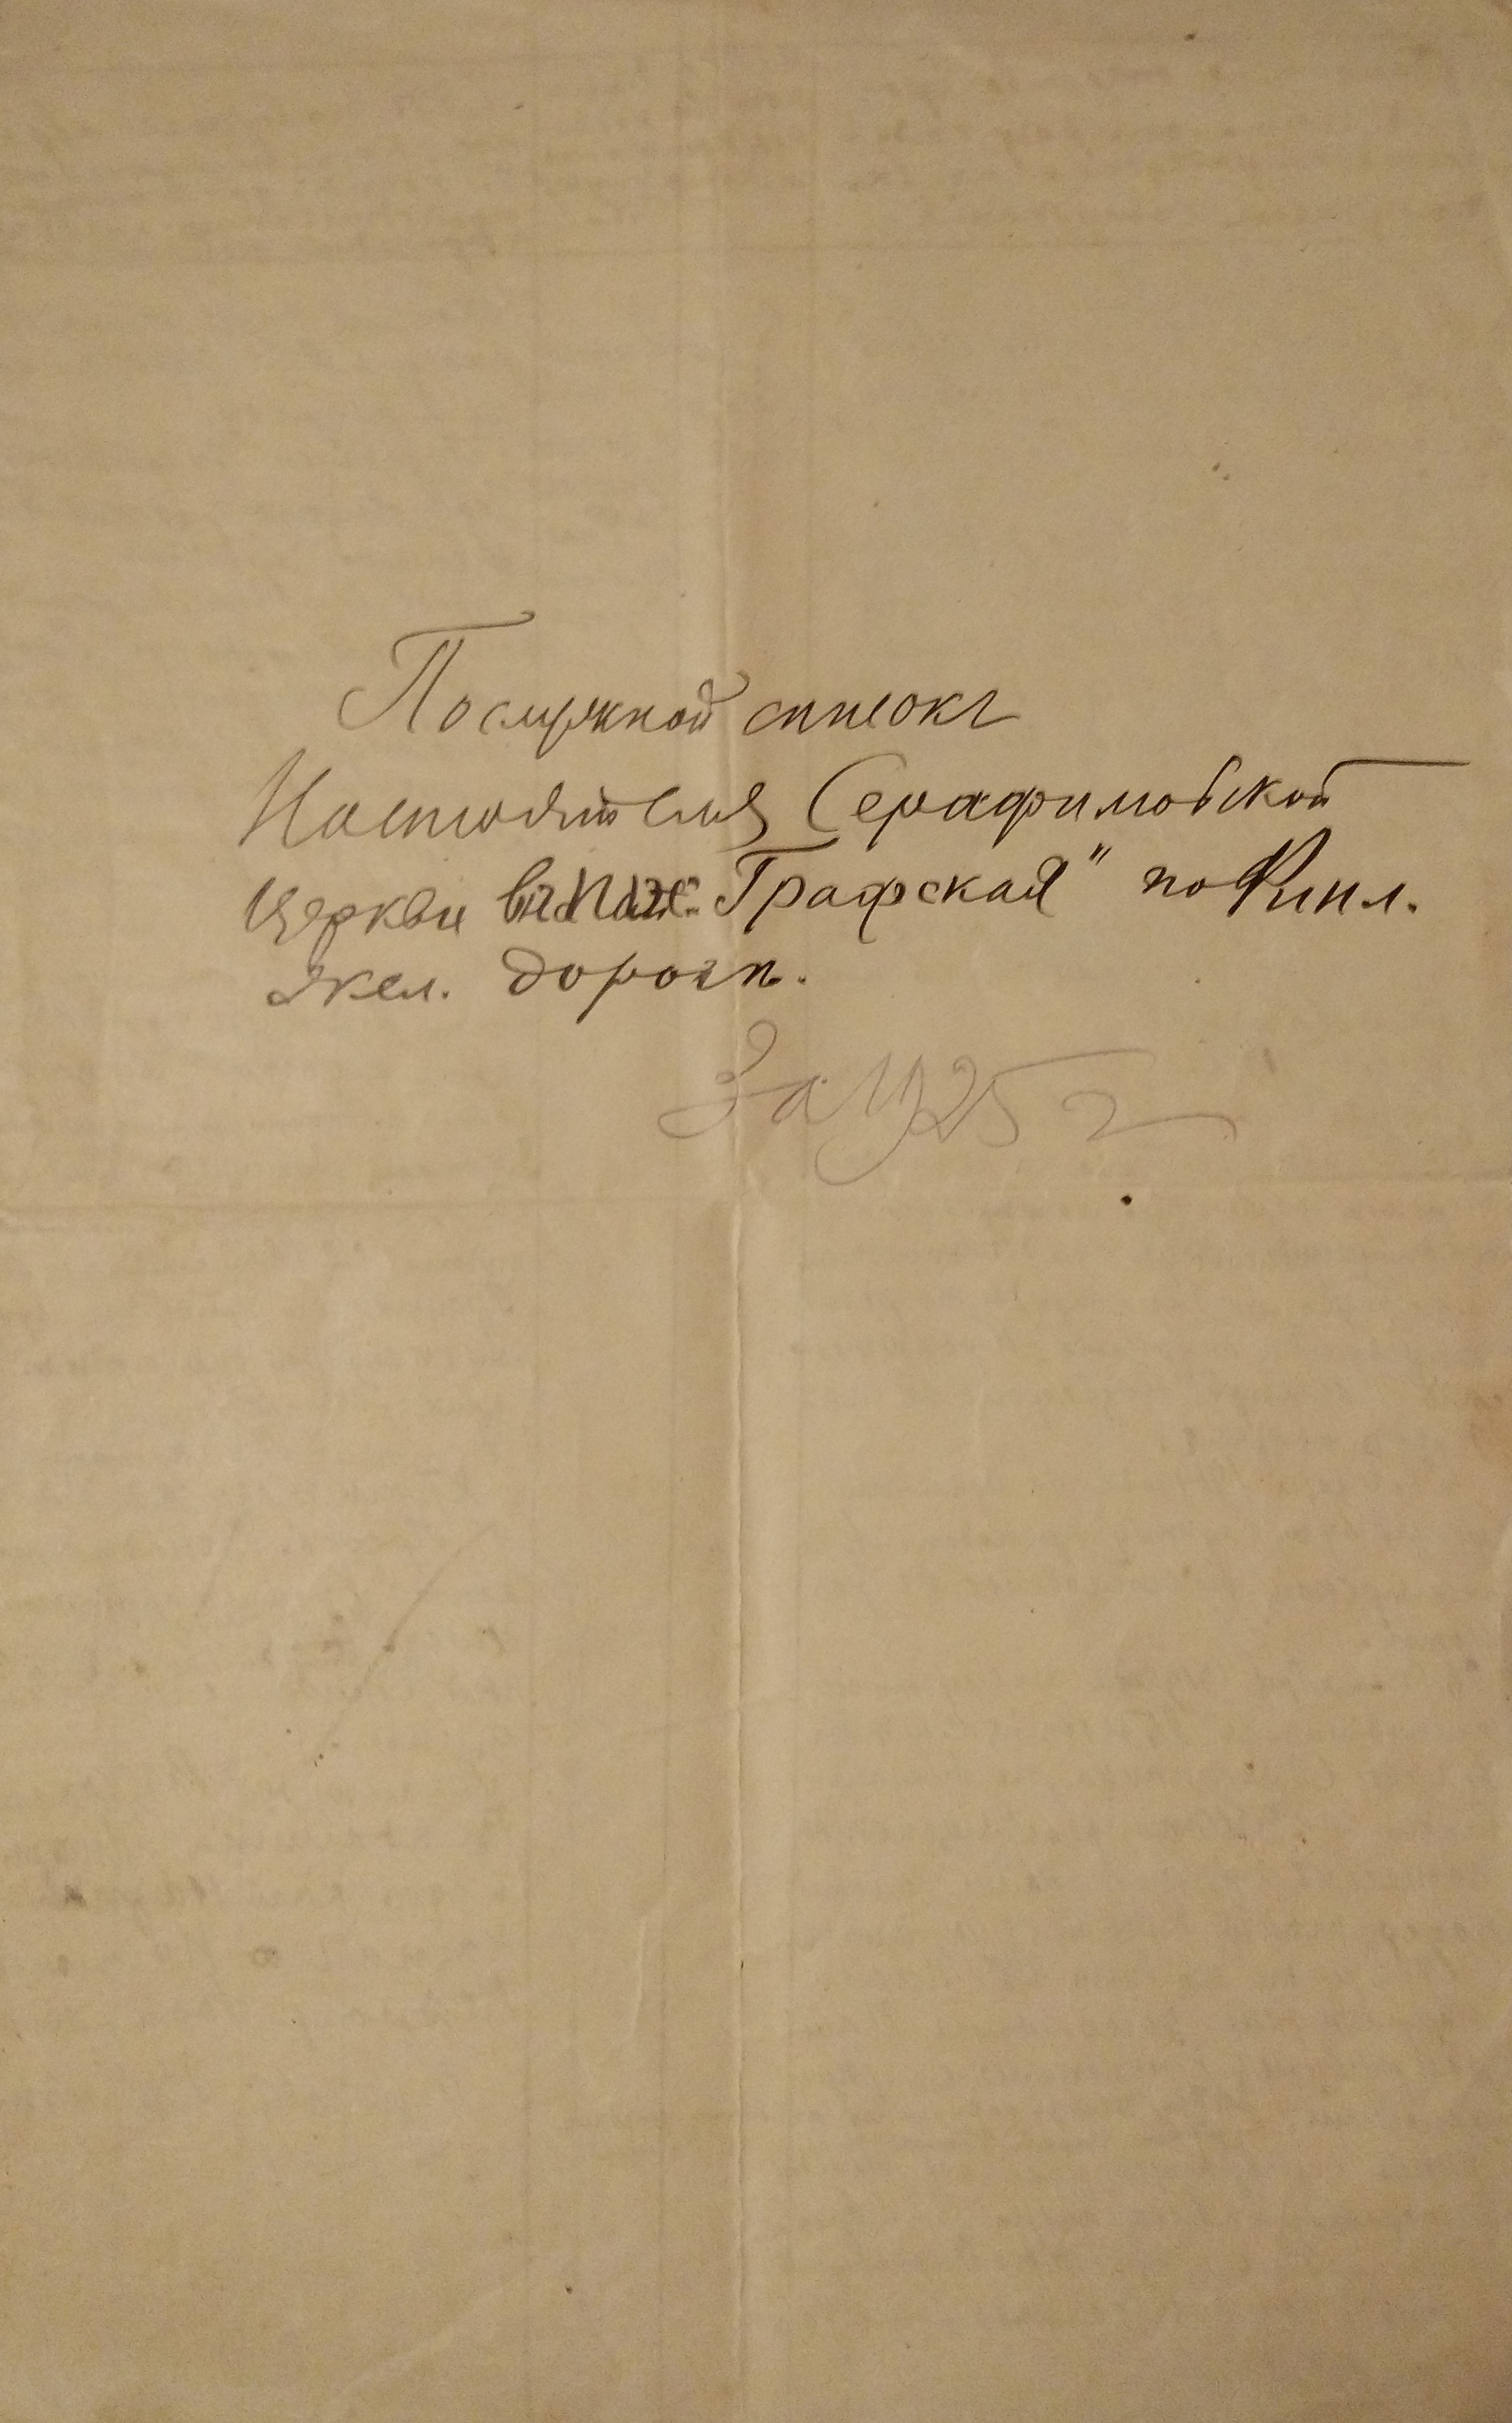 Послужной списокъ
Настоятеля Серафимовской
Церкви Графская" по Финл.
жел. дороги.
За 1925 г